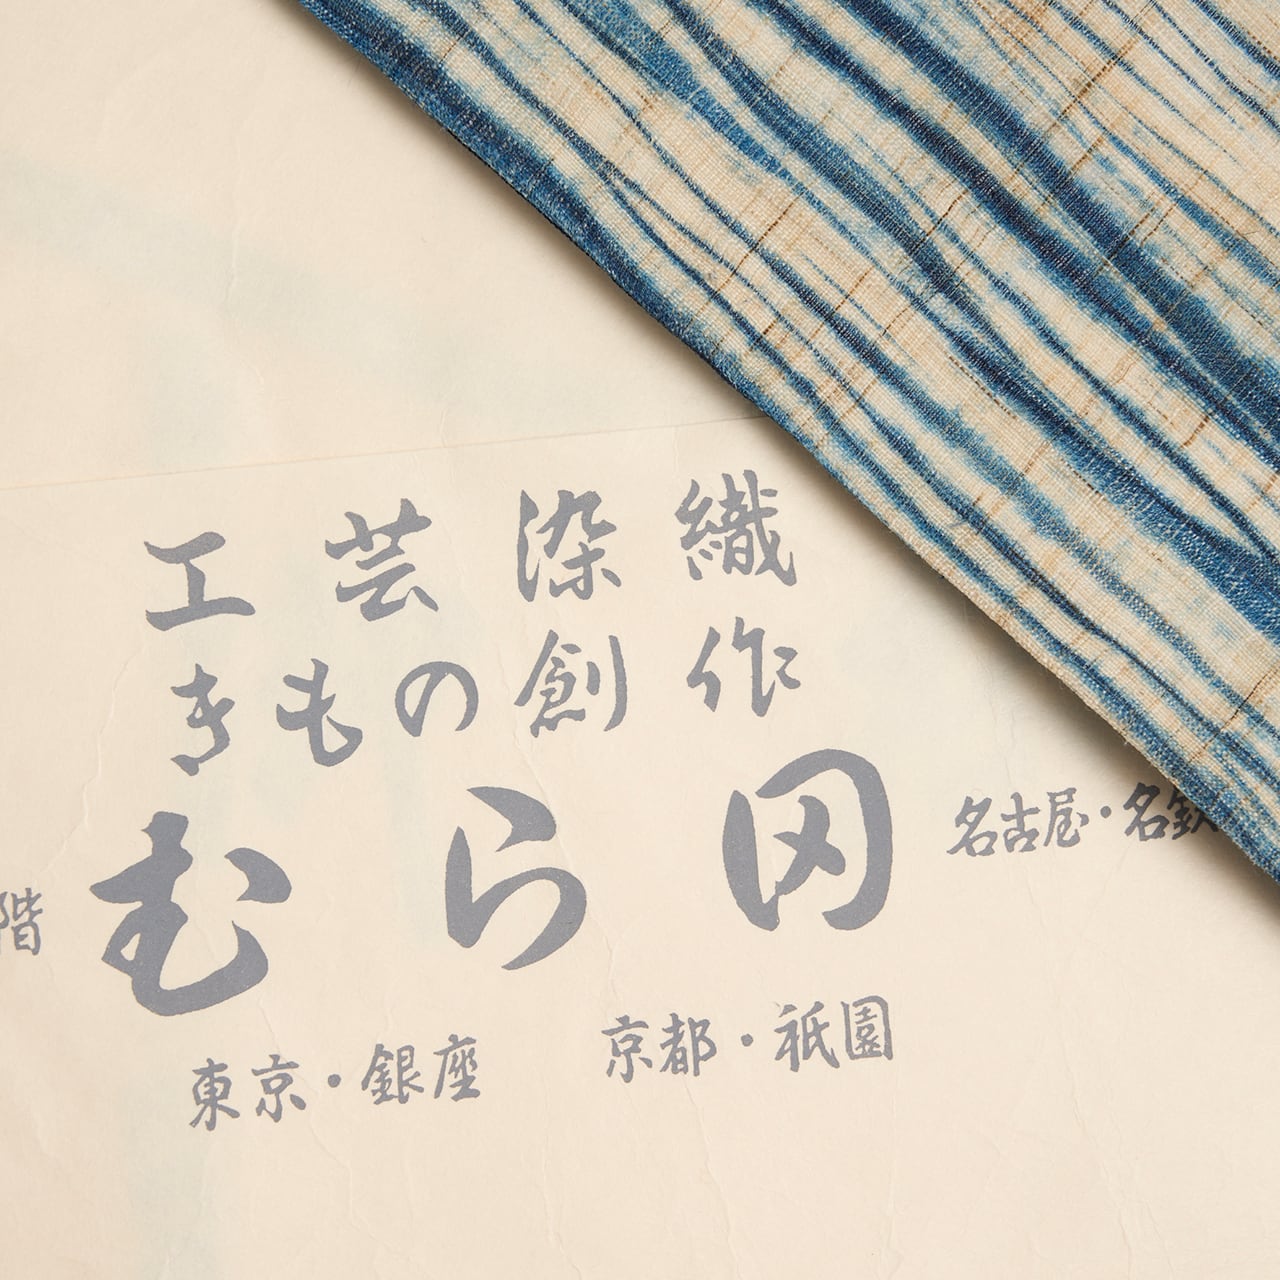 工芸染織
きもの創作
むら岡
階
名古屋・名鉄
東京・銀座
京都・祇園